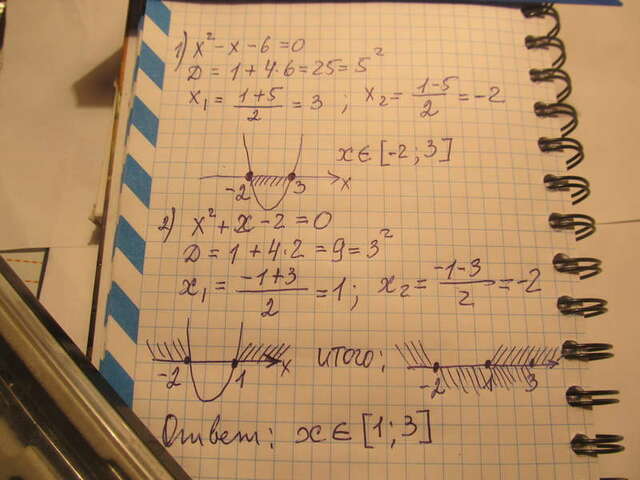 1) x² - x - 6 = 0
D = 1 + 4·6 = 25 = 5²
x₁ = (1+5)/2 = 3 ; x₂ = (1-5)/2 = -2
x ∈ [-2 ; 3]
-2 3 x
2) x² + x - 2 = 0
D = 1 + 4·2 = 9 = 3²
x₁ = (-1+3)/2 = 1; x₂ = (-1-3)/2 = -2
-2 1 x итого: -2 1 3
Ответ: x ∈ [1 ; 3]